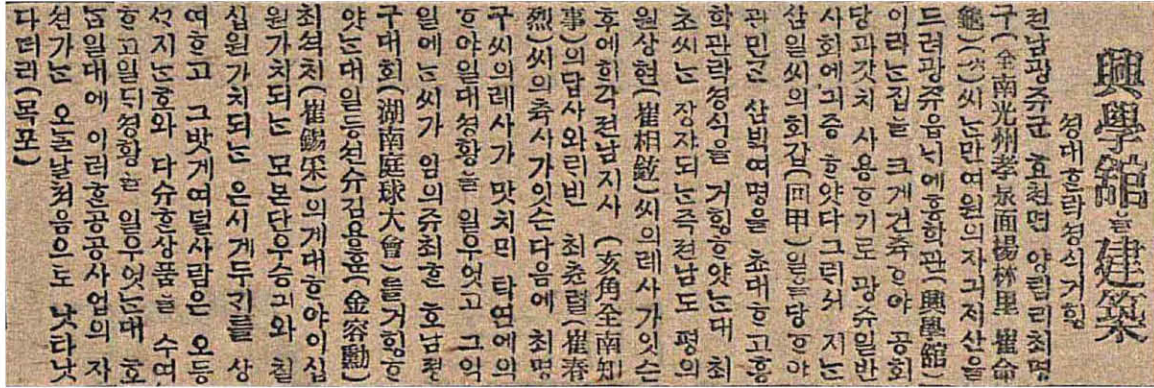 興學舘을建築
셩대흔락셩식거힝
전남광쥬군 효천면 양림리최명
구(全南光州孝泉面楊林里 崔命
龜)(六)씨는만여원의자긔저산을
드려광쥬읍니에흥학관(興學舘)
이라는집을 크게건축ᄒᆞ야 공회
당과갓치 사용ᄒᆞ기로 광쥬일반
사회에긔증ᄒᆞ얏다그런듸 지는
삼일씨의회갑(回甲)일을당ᄒᆞ야
관민군 삼백여명을 쵸대ᄒᆞ고흥
학관락셩식을 거힝ᄒᆞ얏는대 최
초씨는 장자되는즉전남도 평의
원상현(崔相鉉)씨의례사가잇슨
후에희각전남지사 (亥角全南知
事)의답사와릭빈 최츈렬(崔春
烈)씨의츅사가잇슨다음에 최명
구씨의례사가 맛치믹 타연에의
ᄒᆞ야일대셩황을 일우엇고 그익
일에는씨가 임의쥬최ᄒᆞᆫ 호남졍
구대회(湖南庭球大會)를거힝ᄒᆞ
얏는대일등션슈김용훈(金容勳)
최셕채(崔錫采)의게대ᄒᆞ야이십
원가치되는 모본단우승긔와 칠
십원가치되는 은시계두기를 상
여ᄒᆞ고 그밧게여덜사람은 오등
석지는ᄒᆞ와 다슈ᄒᆞᆫ상품을 수여
ᄒᆞ고일듸셩황을 일우엇는대 호
는일대에 이러ᄒᆞᆫ공공사업의 자
션가는 오늘날처음으로 낫타낫
다더라(목포)